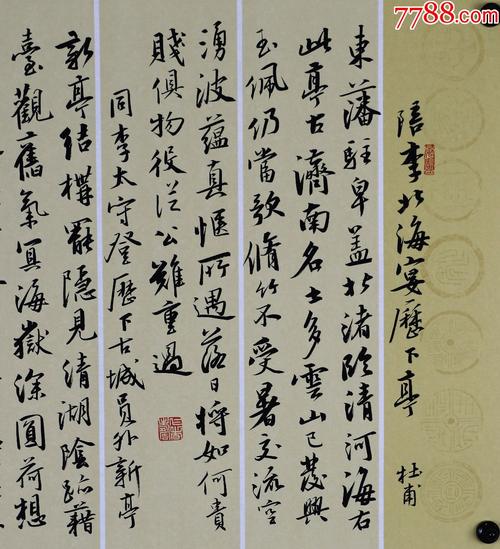 7788.com
陪李北海宴歷下亭 杜甫
東藩駐皁蓋北渚臨清河海右
此亭古濟南名士多雲山已發興
玉佩仍當歌脩竹不受暑交流空
湧波蘊真愜所遇落日將如何貴
賤俱物役從公難重過
同李太守登歷下古城員外新亭
新亭結構罷隱見清湖陰跡藉
臺觀舊氣冥海嶽深圓荷想